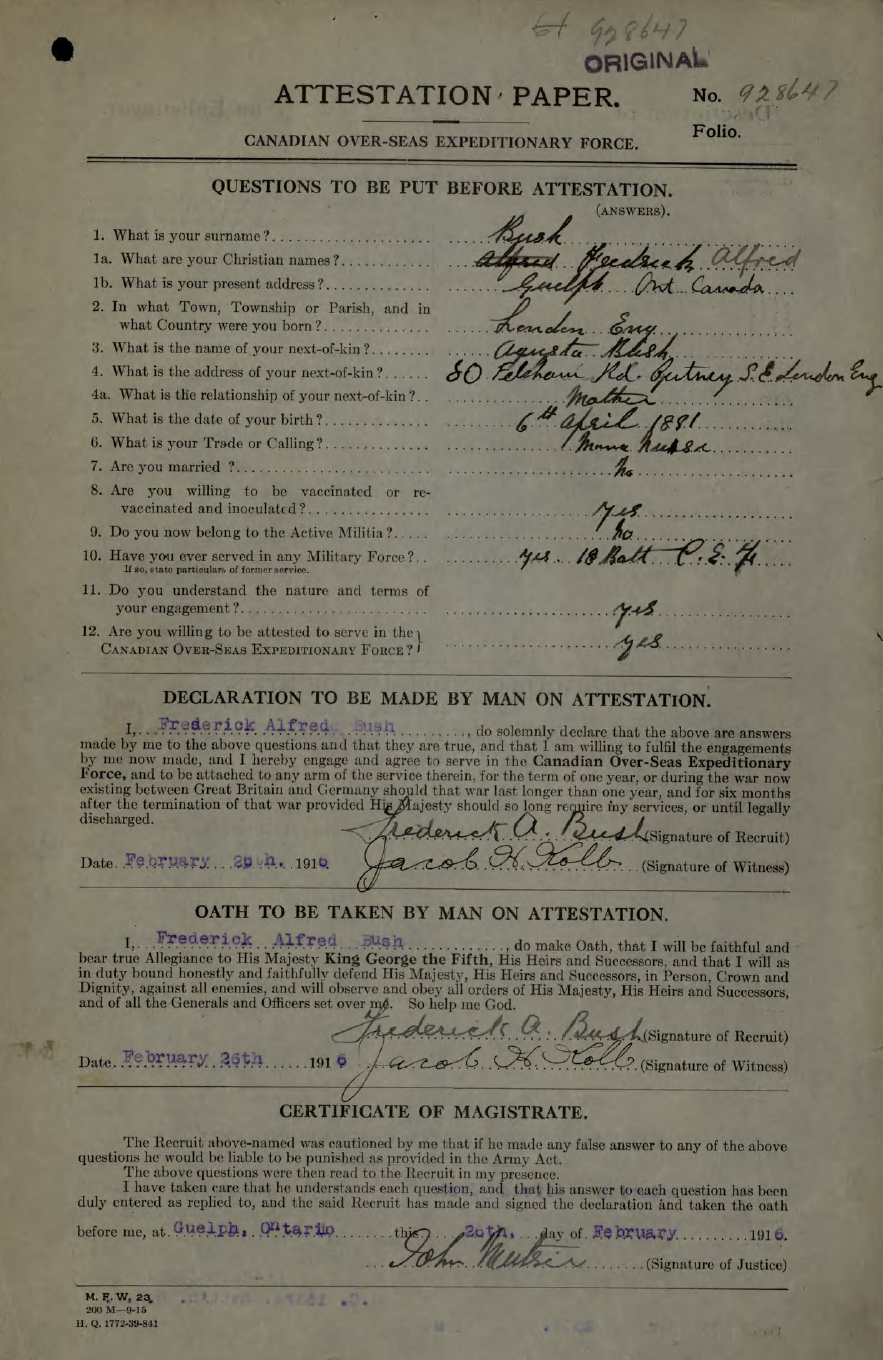 928647
ORIGINAL
ATTESTATION PAPER.
No. 928647
Folio.
CANADIAN OVER-SEAS EXPEDITIONARY FORCE.
QUESTIONS TO BE PUT BEFORE ATTESTATION.
(ANSWERS).
1. What is your surname? Bush
1a. What are your Christian names? Alfred Fredrick Alfred
1b. What is your present address? Guelph Ont Canada
2. In what Town, Township or Parish, and in
what Country were you born? London Eng
3. What is the name of your next-of-kin? Agusta Bush
4. What is the address of your next-of-kin? 80 Felsham Rd. Putney S.E. London Eng
4a. What is the relationship of your next-of-kin? Mother
5. What is the date of your birth? 6th April 1881
6. What is your Trade or Calling? Nurse
7. Are you married? no
8. Are you willing to be vaccinated or re-
vaccinated and inoculated? yes
9. Do you now belong to the Active Militia? no
10. Have you ever served in any Military Force? yes 18 Batt C.E.F.
If so, state particulars of former service.
11. Do you understand the nature and terms of
your engagement? yes
12. Are you willing to be attested to serve in the
CANADIAN OVER-SEAS EXPEDITIONARY FORCE? yes
DECLARATION TO BE MADE BY MAN ON ATTESTATION.
I, Frederick Alfred Bush, do solemnly declare that the above are answers
made by me to the above questions and that they are true, and that I am willing to fulfil the engagements
by me now made, and I hereby engage and agree to serve in the Canadian Over-Seas Expeditionary
Force, and to be attached to any arm of the service therein, for the term of one year, or during the war now
existing between Great Britain and Germany should that war last longer than one year, and for six months
after the termination of that war provided His Majesty should so long require my services, or until legally
discharged.
Frederick A. Bush (Signature of Recruit)
Date February 1916 Jacob H. Kolb (Signature of Witness)
OATH TO BE TAKEN BY MAN ON ATTESTATION.
I, Frederick Alfred Bush, do make Oath, that I will be faithful and
bear true Allegiance to His Majesty King George the Fifth, His Heirs and Successors, and that I will as
in duty bound honestly and faithfully defend His Majesty, His Heirs and Successors, in Person, Crown and
Dignity, against all enemies, and will observe and obey all orders of His Majesty, His Heirs and Successors,
and of all the Generals and Officers set over me. So help me God.
Frederick A. Bush (Signature of Recruit)
Date February 26th 1916 Jacob H. Kolb (Signature of Witness)
CERTIFICATE OF MAGISTRATE.
The Recruit above-named was cautioned by me that if he made any false answer to any of the above
questions he would be liable to be punished as provided in the Army Act.
The above questions were then read to the Recruit in my presence.
I have taken care that he understands each question, and that his answer to each question has been
duly entered as replied to, and the said Recruit has made and signed the declaration and taken the oath
before me, at Guelph, Ontario this day of February 1916.
John (Signature of Justice)
M. F. W. 23.
200 M—9-15
H. Q. 1772-39-841